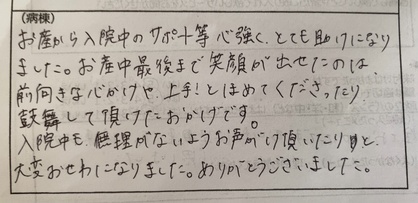 (病棟)
お産から入院中のサポート等心強く、とても助けになり
ました。お産中最後まで笑顔が出せたのは
前向きな心がけや、上手!とほめてくださったり
鼓舞して頂けたおかげです。
入院中も、無理がないようお声がけ頂いたりと、
大変おせわになりました。ありがとうございました。